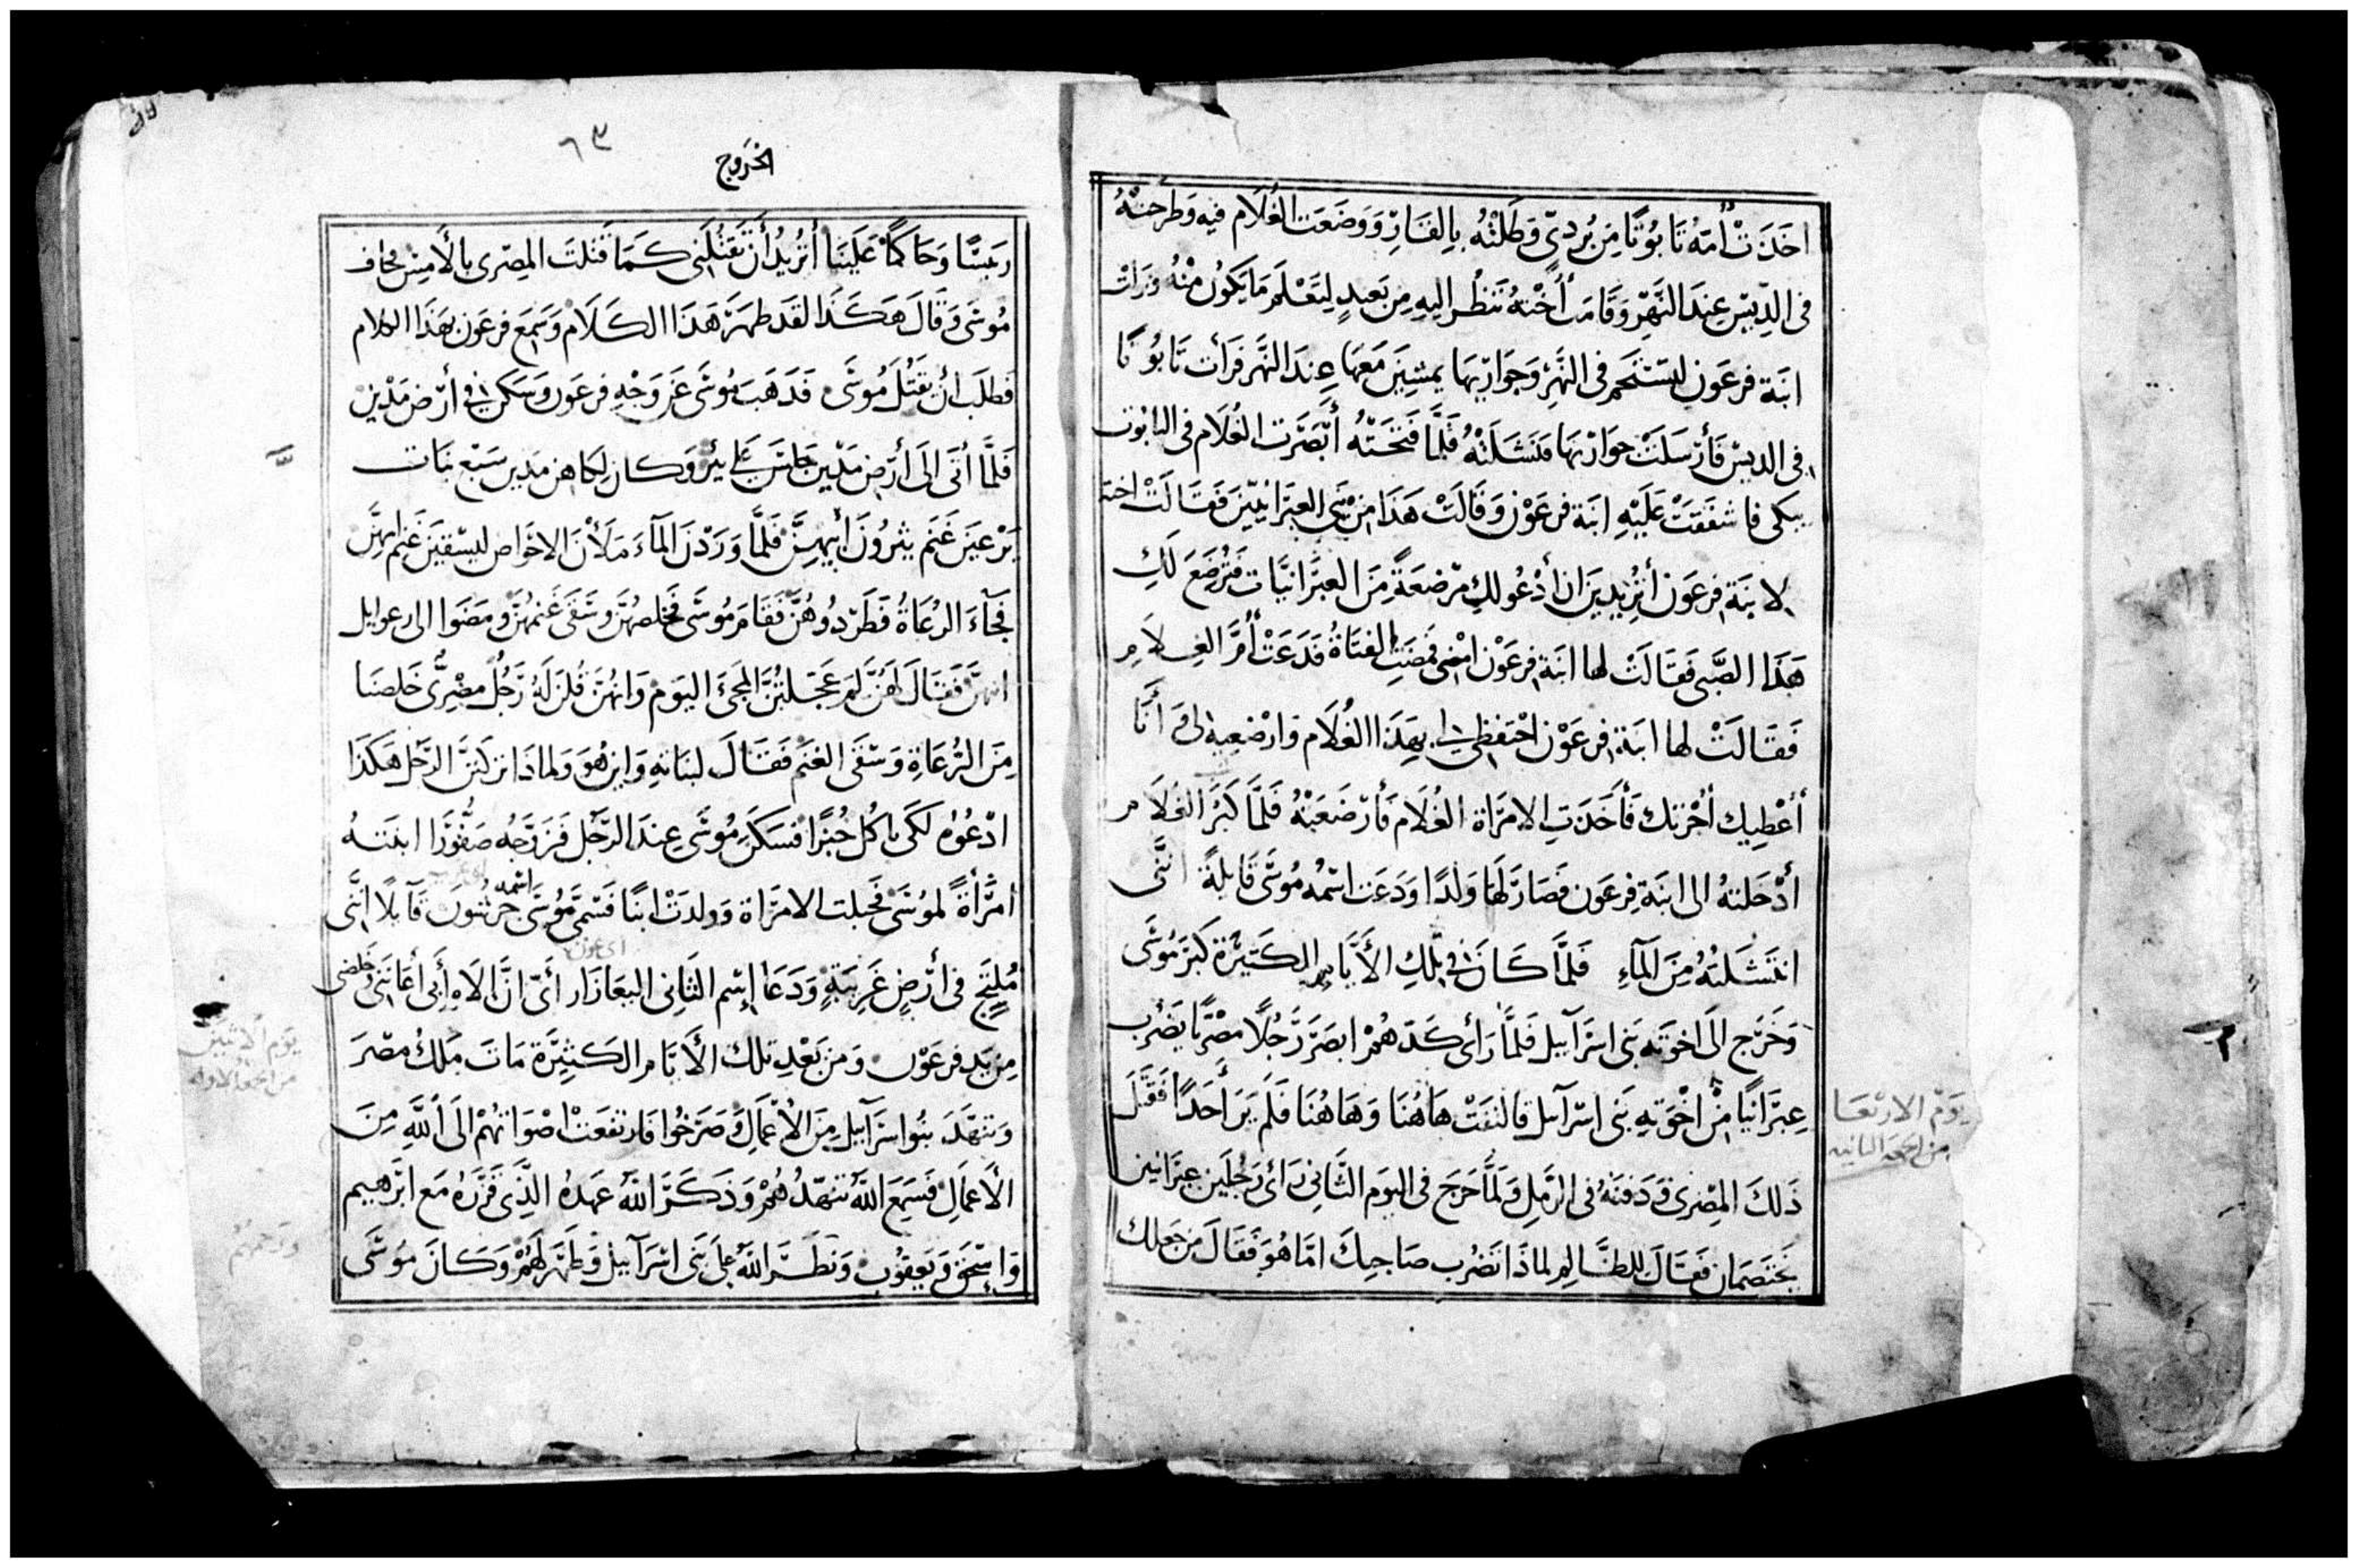 اخذَتْ أُمّهُ تابُوتًا مِن بُردىّ وَطَلَتْهُ بالِقارْ وَوَضَعَت الغُلَام فيِه وَطَرَحَتْهُ
فى الدِّيْسْ عِندَ النَّهرْ وَقَامَت أُخْتهُ تَنظُر اليهِ مِن بَعيدٍ لِتَعْلَم مَا يَكُون مِنْهُ ونزلت
ابنَة فرعَون لتستَحم فى النَّهرْ وَجَوَاريْهَا يمشيْنَ مَعَهَا عِندَ النَهر فَرَأت تَابُوتًا
فى الديسْ فَأرْسَلَتْ جوَاريْهَا فنَشَلَتْهُ فلمَّا فتحَتْهُ أبْصَرَت الغُلَام فى التابُوت
يبكى فاشفَقَتْ عَلَيْهِ ابنَة فرعَوْن وَقَالَتْ هَذَا مِنْ بَنى العِبَرَانيّيْنَ فَقَالَتْ اختهُ
لابنَةِ فرعَون أتُريْديَن ان أدْعُو لكِ مُرْضعَةً مِنَ العبرَانيَّات فَتُرضعَ لَكِ
هَذَا الصَّبى فقَالَتْ لها ابنَة فرعَوْن امْضى فمضَتِ الفتَاةُ فَدَعَتْ أُمَّ الغلَام
فَقَالَتْ لها ابنَة فرعَوْن احْتفظى لى بهَذَا الغُلَام وَارْضعيهِ لى وَ أنَا
أُعْطِيك أُجْرتك فَأخَذَتِ الامرَاة الغُلَام فأرْضَعَتْهُ فلمَّا كَبُرَ الغُلَام
أدْخَلتهُ الى ابنَةِ فِرعَون فَصَارَ لَهَا وَلَدًا وَدَعَت اسْمهُ مُوسَى قَايلةً انَّنى
انتَشَلتُهُ مِنَ المآءِ فَلمَّا كَانَ فى تِلك الأيَّام الكَثيْرَة كَبُرَ مُوسَى
وَخَرَج الَى اخوَتهِ بَنى اسْرَآييل فَلمَّا رَأى كَدَّهُمْ ابصَرَ رَجُلًا مصْريًا يَضْرِب
عِبرَانيًا مِنْ اخْوَتهِ بَنى اسْرآييل فالتفَتْ هَاهُنَا وَهَاهُنَا فَلَم يَرَ أحَدًا فَقَتَلَ
ذَلكَ المِصْرى وَدَفنَهُ فى الرَّملِ وَلمَّا خرَجَ فى اليَوم الثَّانِى رَأى رَجُلَين عبرَانيين
يَختَصمَان فَقَالَ للظَّالِم لماذَا تَضْرب صَاحِبكَ امَّا هُوَ فَقَالَ مَن جَعَلك
يَوْم الارْبَعَا
من الجمعه الثانيه
الخرُوج
٦٣
رَئيسًا وَحَاكمًا عَلَينَا أتُريْدُ أَنْ تَقتُلَنى كَمَا قَتَلتَ المِصْرى بالأمِسْ فخَاف
مُوسَى وَقَالَ هَكَذَا لقَد ظهَرَ هَذَا الكَلَام وَسَمِعَ فرعَون بهَذَا الكلَام
فَطلَب أن يقتُلَ مُوسَى فَذَهَبَ مُوسَى عَن وَجْهِ فرعَون وَسَكَن فى أرْض مَدْيَنْ
فَلمَّا أتَى الَى أرْض مَدْيَن جلسَ عَلى بئرْ وَكَان لِكاهن مَديَن سَبْع بَنَات
يَرْعيْنَ غَنَم يثرُونَ أبيهنَّ فلَمَّا وَرَدْنَ المآءَ مَلَأنَ الاحوَاض ليسْقيْنَ غَنم ابيهنَّ
فجآءَ الرُعَاةُ فَطَرَدُوهُنَّ فَقَامَ مُوسَى فخلصهُنَّ وسَقَى غَنمهُنَّ ومَضَوا الى رعوايل
ابيهنَّ فَقَالَ لَهُنَّ لمَ عَجَلتُنَّ المجئَ اليَوم وَانهُنَّ قُلنَ لَهُ رَجُلٌ مصْرِىٌّ خَلصنَا
مِنَ الرُّعَاةِ وَسَقَى الغَنم فَقَالَ لبنَاتهِ وَاين هُوَ وَلماذَا تركتنَّ الرَّجُل هَكَذَا
ادْعُوهُ لكَى يَاكُل خُبْزًا فسَكَن مُوسَى عِندَ الرَّجُل فَزَوَّجَهُ صَفُّورَا ابنَتهُ
امْرَأَةً لمُوسَى فَحبلت الامرَاة وَولدَتْ ابنًا فسَمَّى مُوسَى اسْمه جرشُون قَآيلًا انَّنى
مُلتَجٍ فى أرْضٍ غَرِيبَةٍ وَدَعَا إسْم الثَانِى اليعَازَار أىّ انَّ الَاه أَبى أعَانَنى وخلصنى
مِن يَد فرعَوْن وَمن بَعْدِ تلك الأيَّام الكَثيْرَة مَاتَ مَلكُ مصْرَ
وَتنهَّدَ بنُوا اسرَآييل مِنَ الأعْمَالِ وَصَرَخُوا فَارتفعَتْ اصْوَاتهُمْ الَى اللَّهِ مِنَ
الأعمَالِ فَسَمِعَ اللَّهُ تنهّدُهُمْ وَذَكَرَ اللَّهُ عَهدهُ الَّذِى قرَّرهُ مَع ابْرهييم
وَاِسْحَق وَيَعقُوب وَنَظَرَ اللَّهُ عَلى بَنى اسْرَآييل وَظهَر لَهُمْ وَكَانَ مُوسَى
يَوم الاثنين
من الجمعه الاوله